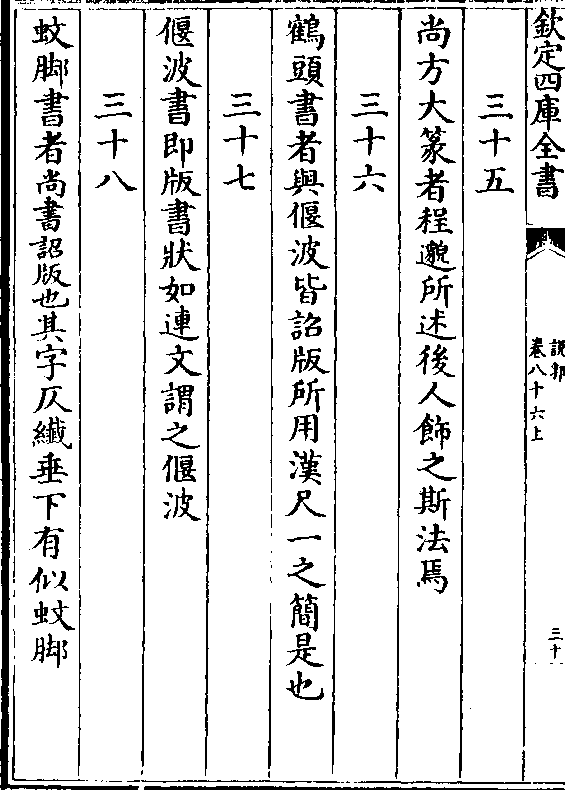 欽定四庫全書
說郛
卷八十六上
三十
三十五
尚方大篆者程邈所述後人飾之斯法焉
三十六
鶴頭書者與偃波皆詔版所用漢尺一之簡是也
三十七
偃波書即版書狀如連文謂之偃波
三十八
蚊脚書者尚書詔版也其字仄纖垂下有似蚊脚